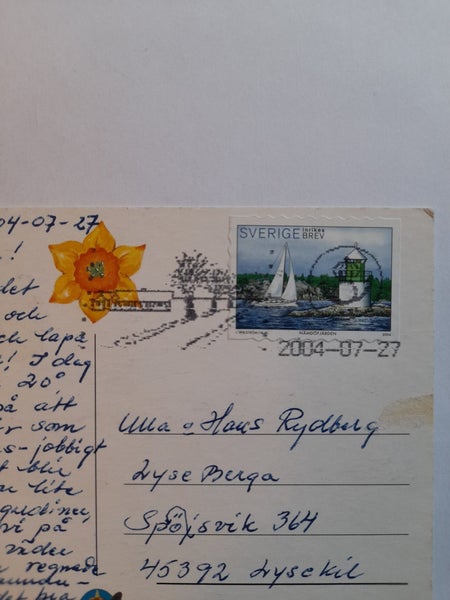 04-07-27
!
let
och
ch lapa
! I dag
20°
på att
ir som
s-jobbigt
t blir
lite
gudinec,
vi på
väder
regnade
det bra
SVERIGE inrikes BREV
NÄMDÖFJÄRDEN
2004-07-27
Ulla o Hans Rydberg
Lyse Berga
Spöjsvik 364
45392 Lysekil